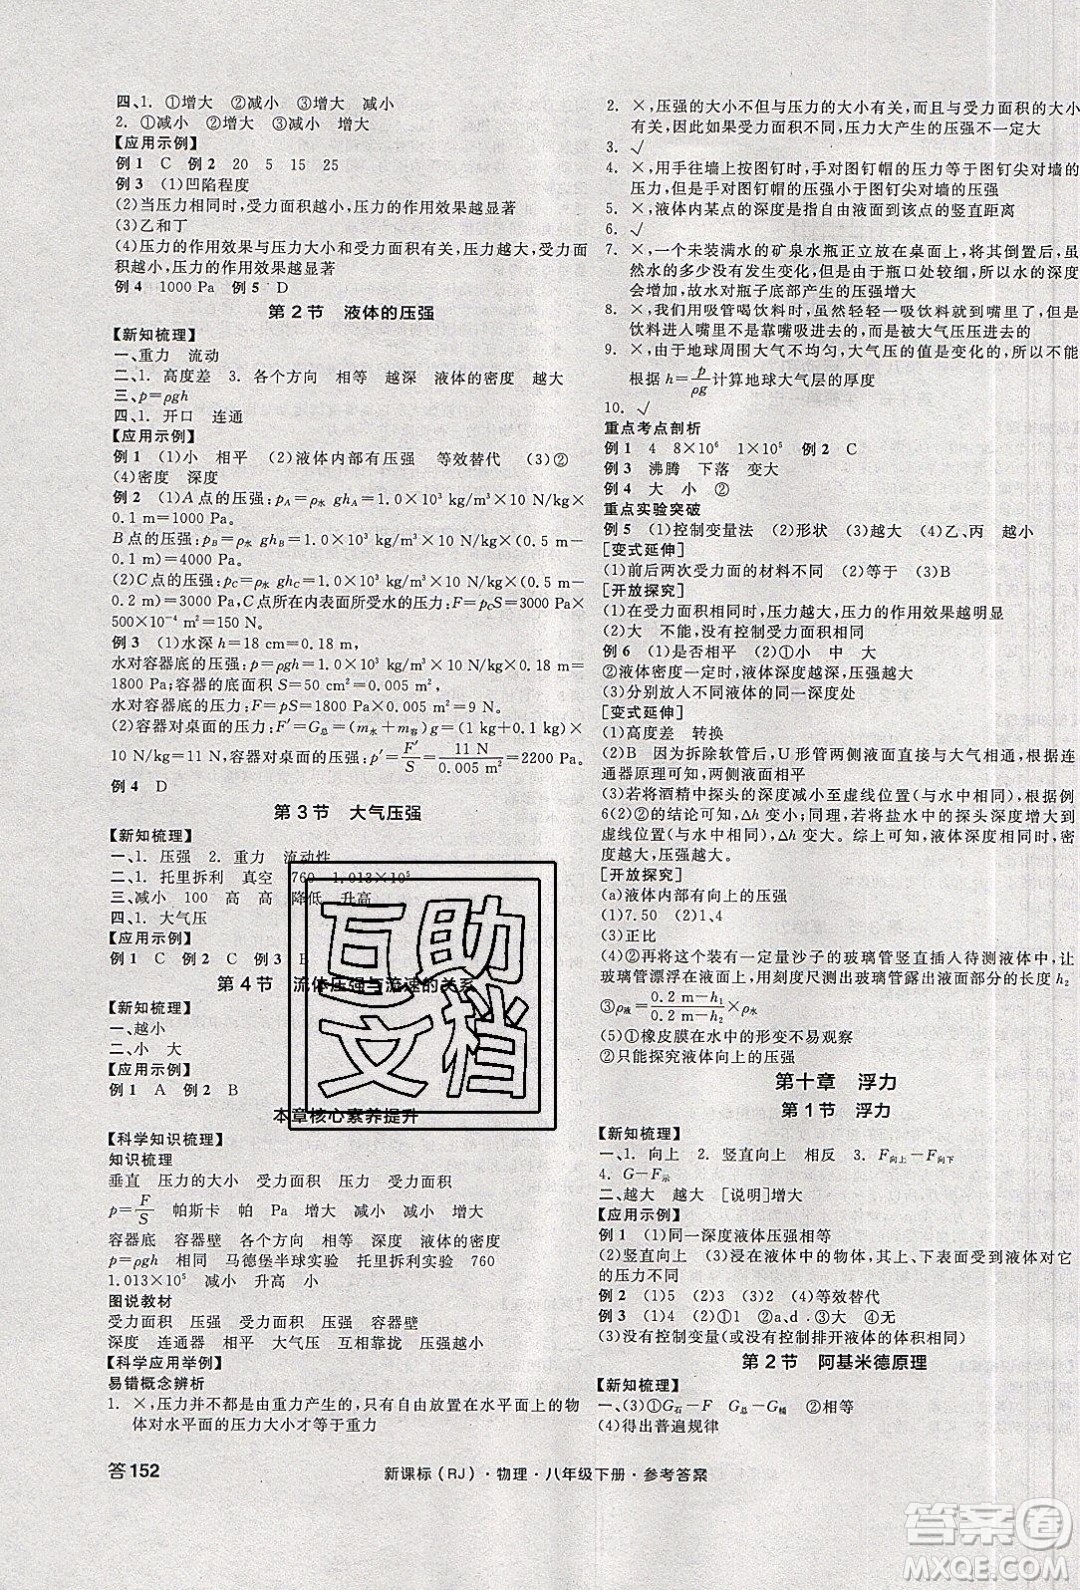 四、1. ①增大 ②减小 ③增大 减小
2. ①减小 ②增大 ③减小 增大
【应用示例】
例1 C 例2 20 5 15 25
例3 (1)凹陷程度
(2)当压力相同时,受力面积越小,压力的作用效果越显著
(3)乙和丁
(4)压力的作用效果与压力大小和受力面积有关,压力越大,受力面积越小,压力的作用效果越显著
例4 1000 Pa 例5 D
第2节 液体的压强
【新知梳理】
一、重力 流动
二、1. 高度差 3. 各个方向 相等 越深 液体的密度 越大
三、p=ρgh
四、1. 开口 连通
【应用示例】
例1 (1)小 相平 (2)液体内部有压强 等效替代 (3)②
(4)密度 深度
例2 (1)A点的压强:p_A=ρ水 gh_A=1.0×10³ kg/m³×10 N/kg×
0.1 m=1000 Pa。
B点的压强:p_B=ρ水 gh_B=1.0×10³ kg/m³×10 N/kg×
0.4 m=4000 Pa。
(2)C点的压强:p_C=ρ水 gh_C=1.0×10³ kg/m³×10 N/kg×
0.3 m=3000 Pa,C点所在内表面所受水的压力:F=p_CS=3000 Pa×
500×10⁻⁴ m²=150 N。
例3 (1)水深h=18 cm=0.18 m,
水对容器底的压强:p=ρgh=1.0×10³ kg/m³×10 N/kg×0.18 m=
1800 Pa;容器的底面积S=50 cm²=0.005 m²,
水对容器底的压力:F=pS=1800 Pa×0.005 m²=9 N。
(2)容器对桌面的压力:F′=G总=(m水+m容)g=(1 kg+0.1 kg)×
10 N/kg=11 N;容器对桌面的压强:p′=F′/S=11 N/0.005 m²=2200 Pa。
例4 D
第3节 大气压强
【新知梳理】
一、1. 压强 2. 重力 流动性
二、1. 托里拆利 真空 760 1.013×10⁵
三、减小 100 高 高 降低 升高
四、1. 大气压
【应用示例】
例1 C 例2 C 例3 B
第4节 流体压强与流速的关系
【新知梳理】
一、越小
二、小 大
【应用示例】
例1 A 例2 B
本章核心素养提升
【科学知识梳理】
知识梳理
垂直 压力的大小 受力面积 压力 受力面积
p=F/S 帕斯卡 帕 Pa 增大 减小 减小 增大
容器底 容器壁 各个方向 相等 深度 密度
p=ρgh 相同 马德堡半球实验 托里拆利实验 760
1.013×10⁵ 减小 升高 小
图说教材
受力面积 压力 受力面积 容器壁
深度 连通器 相平 大气压 互相靠拢 压强
【科学应用举例】
易错概念辨析
1. ×,压力并不都是由重力产生的,只有自由放置在水平面上的物
体对水平面的压力大小才等于重力
2. ×,压强的大小不但与压力的大小有关,而且与受力面积的大小
有关,因此如果受力面积不同,压力大产生的压强不一定大
3. √
4. ×,用手往墙上按图钉时,手对图钉帽的压力等于图钉尖对墙的
压力,但是手对图钉帽的压强小于图钉尖对墙的压强
5. ×,液体内某点的深度是指自由液面到该点的竖直距离
6. √
7. ×,一个未装满水的矿泉水瓶正立放在桌面上,将其倒置后,虽
然水的多少没有发生变化,但是由于瓶口处较细,所以水的深度
增加,故水对瓶子底部产生的压强增大
8. ×,吸管喝饮料时,虽然轻轻一吸饮料就到嘴里了,但是
饮料进入嘴里靠的不是嘴吸,而是大气压压进去的
9. ×,由于地球周围大气不均匀,大气压的值是变化的,所以不能
根据h=p/ρg计算地球大气层的厚度
10. √
重点考点剖析
例1 4 8×10⁶ 1×10⁵ 例2 C
例3 沸腾 下落 变大
例4 大 小 ②
重点实验突破
例5 (1)控制变量法 (2)形状 (3)越大 (4)乙、丙 越小
[变式延伸]
(1)前后两次受力面的材料不同 (2)等于 (3)B
[开放探究]
(1)在受力面积相同时,压力越大,压力的作用效果越明显
(2)大 不能,没有控制受力面积相同
例6 (1)是否相平 (2)①小 中 大
②液体密度一定时,液体深度越深,压强越大
(3)分别放入不同液体的同一深度处
[变式延伸]
(1)高度差 转换
(2)B 因为拆除软管后,U形管两侧液面直接与大气相通,根据连
通器原理可知,两侧液面相平
(3)若将酒精中探头的深度减小至虚线位置(与水中相同),根据例
6(2)②的结论可知,Δh变小;同理,若将盐水中的探头深度增大至
虚线位置(与水中相同),Δh变大。综上可知,液体深度相同时,密
度越大,压强越大
[开放探究]
(a)液体内部有向上的压强
(1)7.50 (2)1、4
(3)正比
(4)②再将这个装有一定量沙子的玻璃管竖直插入待测液体中,让
玻璃管漂浮在液面上,用刻度尺测出玻璃管露出液面部分的长度h₂
③ρ液=(0.2 m-h₁)/(0.2 m-h₂)×ρ水
(5)①橡皮膜在水中的形变不易观察
②只能探究液体向上的压强
第十章 浮力
第1节 浮力
【新知梳理】
一、1. 向上 2. 竖直向上 相反 3. F向上-F向下
4. G-F示
二、越大 越大 [说明]增大
【应用示例】
例1 (1)同一深度液体压强相等
(2)竖直向上 (3)浸在液体中的物体,其上、下表面受到液体对它
的压力不同
例2 (1)5 (2)3 (3)2 (4)等效替代
例3 (1)4 (2)1 ①② ②a、d ③大 ④无
(3)没有控制变量(或没有控制排开液体的体积相同)
第2节 阿基米德原理
【新知梳理】
一、(3)①G石-F G总-G桶 ②相等
(4)得出普遍规律
答152
新课标(RJ)·物理·八年级下册·参考答案
互助文档
答案圈
MXQE.COM